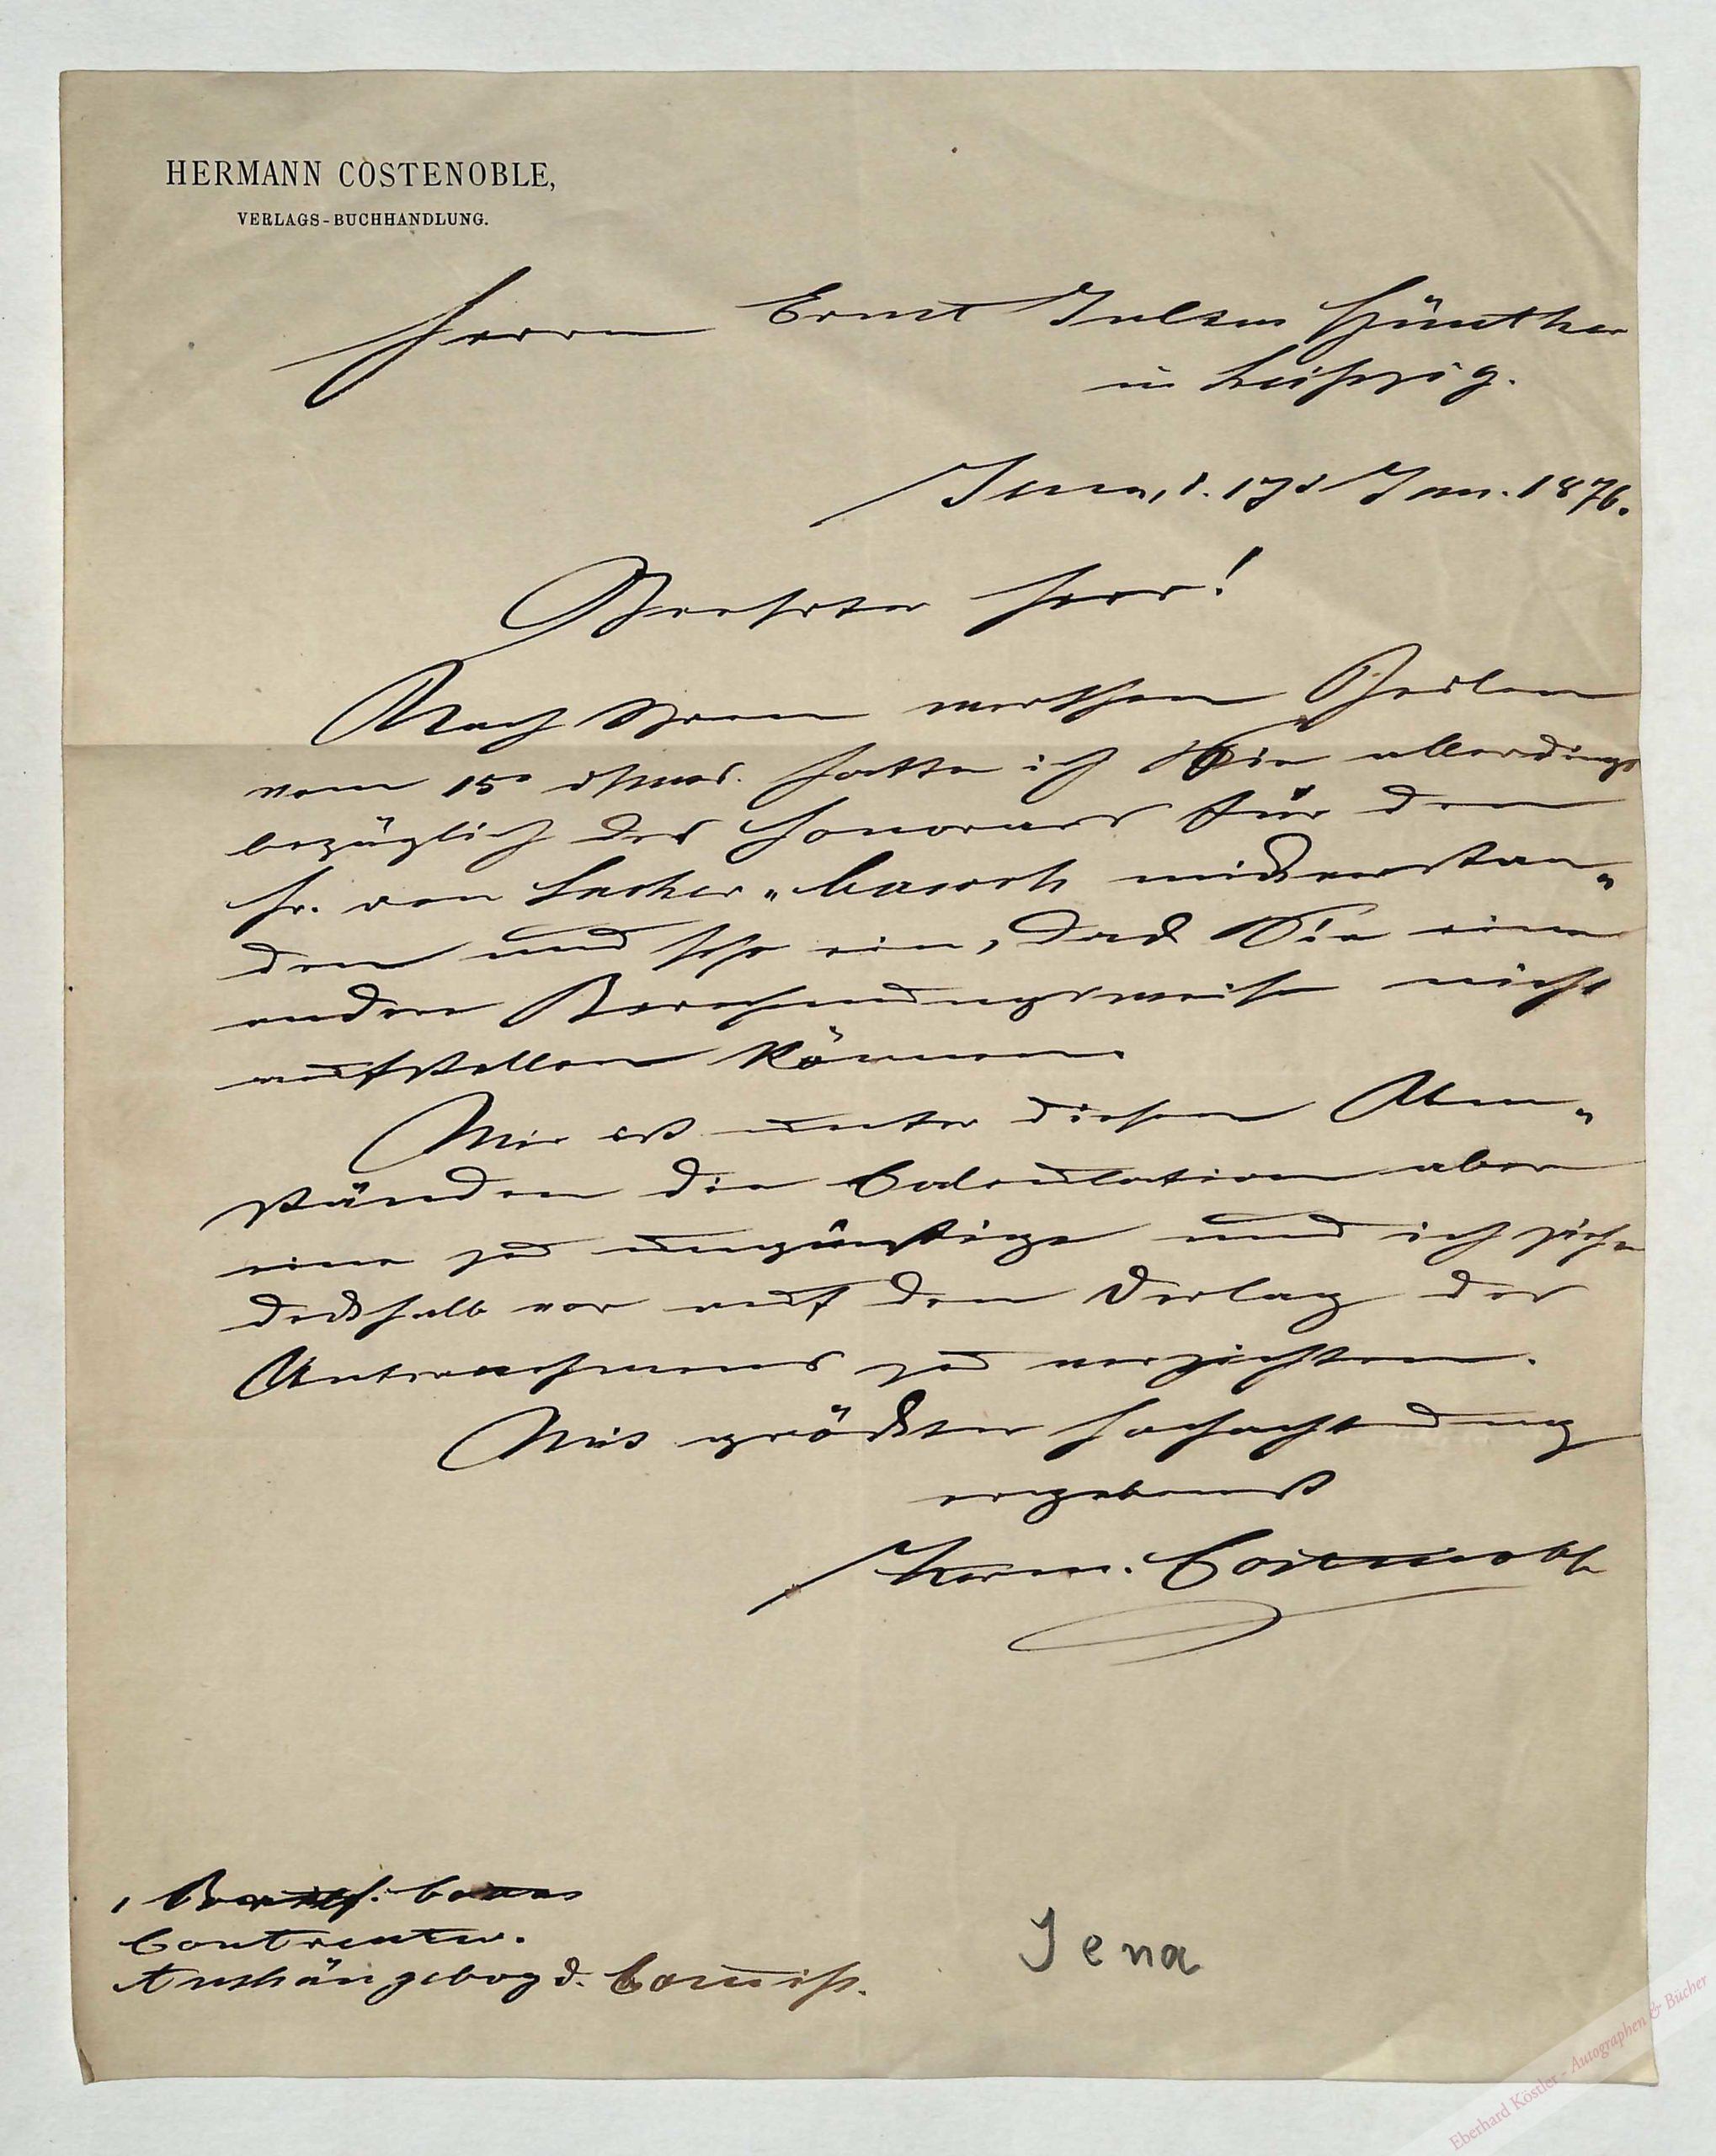 HERMANN COSTENOBLE,
VERLAGS-BUCHHANDLUNG.
Herrn Ernst Julius Günther
in Leipzig.
Jena, d. 17t Jan. 1876.
Geehrter Herr!
Nach Ihren werthen Zeilen
vom 15n dsmts. hatte ich Sie allerdings
bezüglich des Honorars für den
Hr. von Sacher-Masoch mißverstan-
den und sehe ein, daß Sie eine
andere Berechnungsweise nicht
aufstellen können.
Mir ist unter diesen Um-
ständen die Calculation aber
eine zu ungünstige und ich ziehe
deßhalb vor auf den Verlag des
Unternehmens zu verzichten.
Mit größter Hochachtung
ergebenst
Herm. Costenoble
1
Aushängebog d.
Jena
Eberhard Köstler - Autographen & Bücher